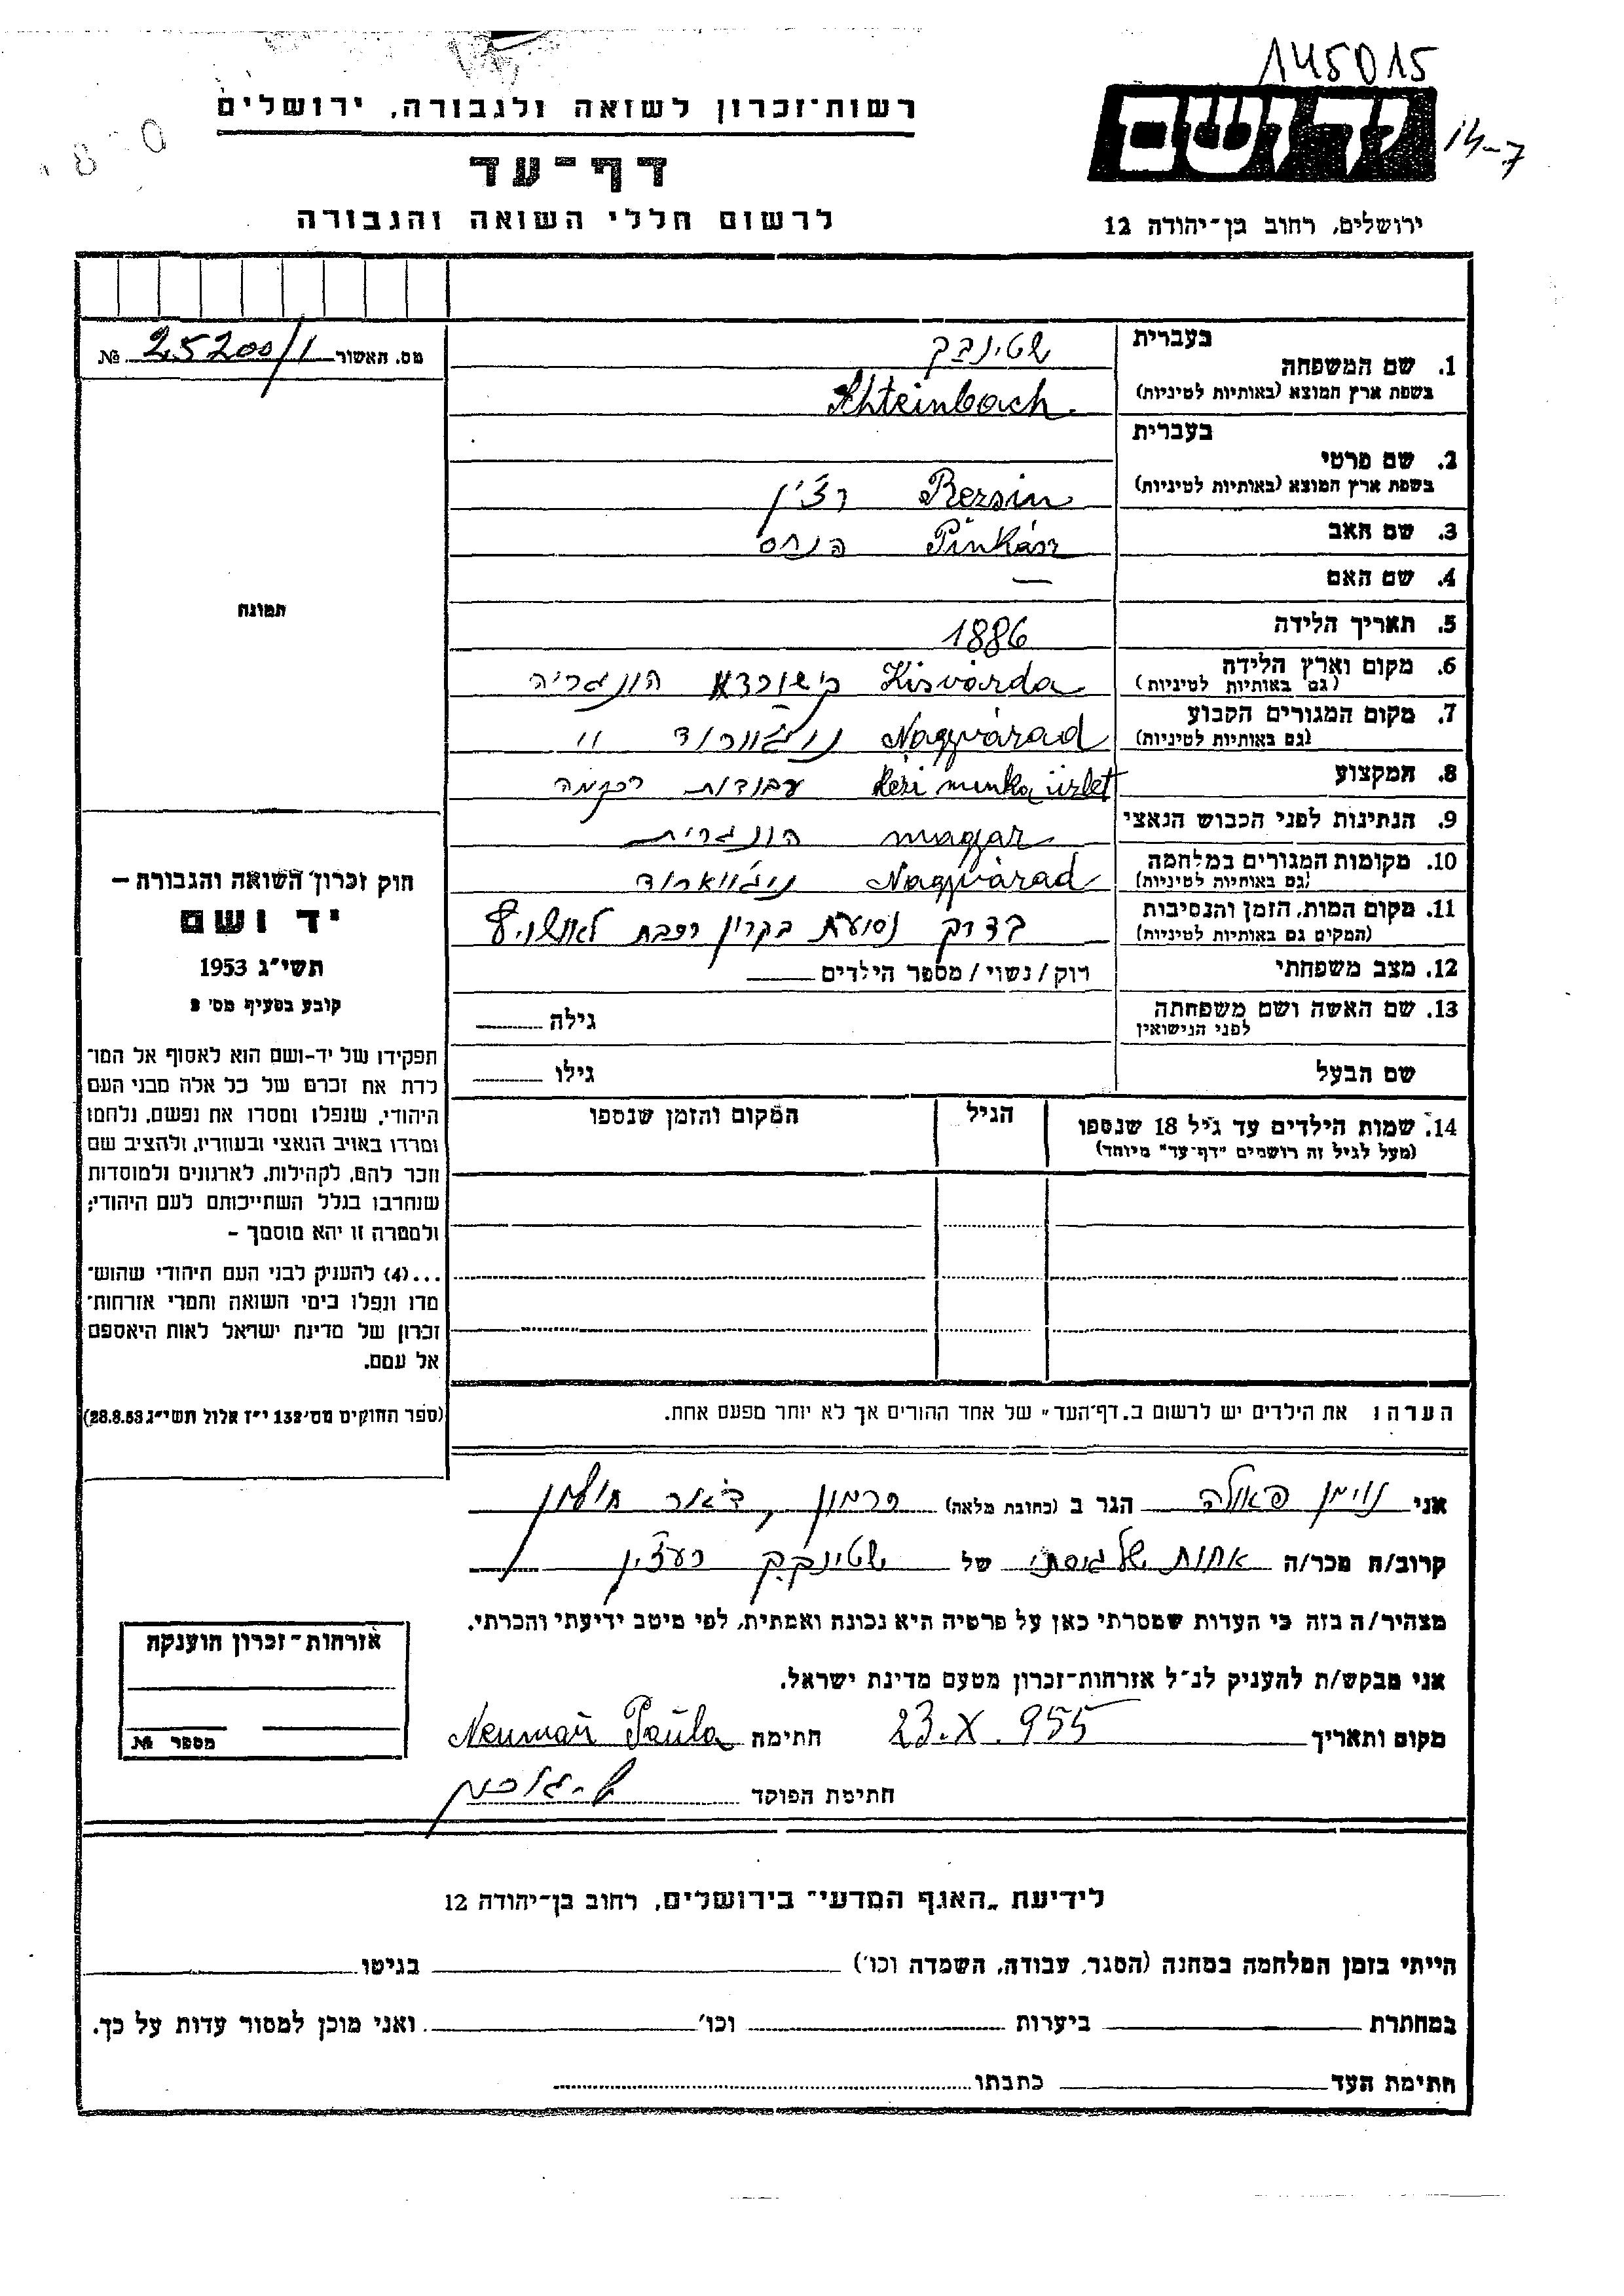 145015
רשות־זכרון לשואה ולגבורה, ירושלים
ידושם
14-7
דף־עד
לרשום חללי השואה והגבורה
ירושלים, רחוב בן־יהודה 12
מס. האשור 25200/1 №
1. שם המשפחה בעברית שטינבך
בשפת ארץ המוצא (באותיות לטיניות) Shteinbach
2. שם פרטי בעברית
בשפת ארץ המוצא (באותיות לטיניות) Rezsin רצ'ין
3. שם האב Pinkász פנחס
4. שם האם —
5. תאריך הלידה 1886
6. מקום וארץ הלידה (גם באותיות לטיניות) Kisvárda קישוורדא הונגריה
7. מקום המגורים הקבוע (גם באותיות לטיניות) Nagyvárad נוג'וורוד "
8. המקצוע Kézi munka üzlet עבודות רקמה
9. הנתינות לפני הכבוש הנאצי magyar הונגרית
10. מקומות המגורים במלחמה (גם באותיות לטיניות) Nagyvárad נוג'ווארוד
11. מקום המות, הזמן והנסיבות (המקום גם באותיות לטיניות) בדרך נסיעת בקרון רכבת לאושויץ
12. מצב משפחתי רוק / נשוי / מספר הילדים
13. שם האשה ושם משפחתה לפני הנישואין גילה
שם הבעל גילו
14. שמות הילדים עד גיל 18 שנספו הגיל המקום והזמן שנספו
(מעל לגיל זה רושמים "דף־עד" מיוחד)
תמונה
חוק זכרון השואה והגבורה —
יד ושם
תשי"ג 1953
קובע בסעיף מס' 2
תפקידו של יד-ושם הוא לאסוף אל המו־
לדת את זכרם של כל אלה מבני העם
היהודי, שנפלו ומסרו את נפשם, נלחמו
ומרדו באויב הנאצי ובעוזריו, ולהציב שם
וזכר להם, לקהילות, לארגונים ולמוסדות
שנחרבו בגלל השתייכותם לעם היהודי;
ולמטרה זו יהא מוסמך —
...(4) להעניק לבני העם היהודי שהוש־
מדו ונפלו בימי השואה והמרי אזרחות־
זכרון של מדינת ישראל לאות היאספם
אל עמם.
(ספר החוקים מס' 132 י"ז אלול תשי"ג 28.8.53)
הערה: את הילדים יש לרשום ב„דף־העד" של אחד ההורים אך לא יותר מפעם אחת.
אני נוימן פאולה הגר ב (כתובת מלאה) כרמון, דאר
קרוב/ה מכר/ה אחות של גיסתי של שטינבך רעצין
מצהיר/ה בזה כי העדות שמסרתי כאן על פרטיה היא נכונה ואמתית, לפי מיטב ידיעתי והכרתי.
אני מבקש/ת להעניק לנ"ל אזרחות־זכרון מטעם מדינת ישראל.
מקום ותאריך 23.X.955 חתימה Neuman Paula
חתימת הפוקד
אזרחות־זכרון הוענקה
מספר №
לידיעת „האגף המדעי" בירושלים, רחוב בן־יהודה 12
הייתי בזמן המלחמה במחנה (הסגר, עבודה, השמדה וכו') בגיטו
במחתרת ביערות וכו' ואני מוכן למסור עדות על כך.
חתימת העד כתבתו